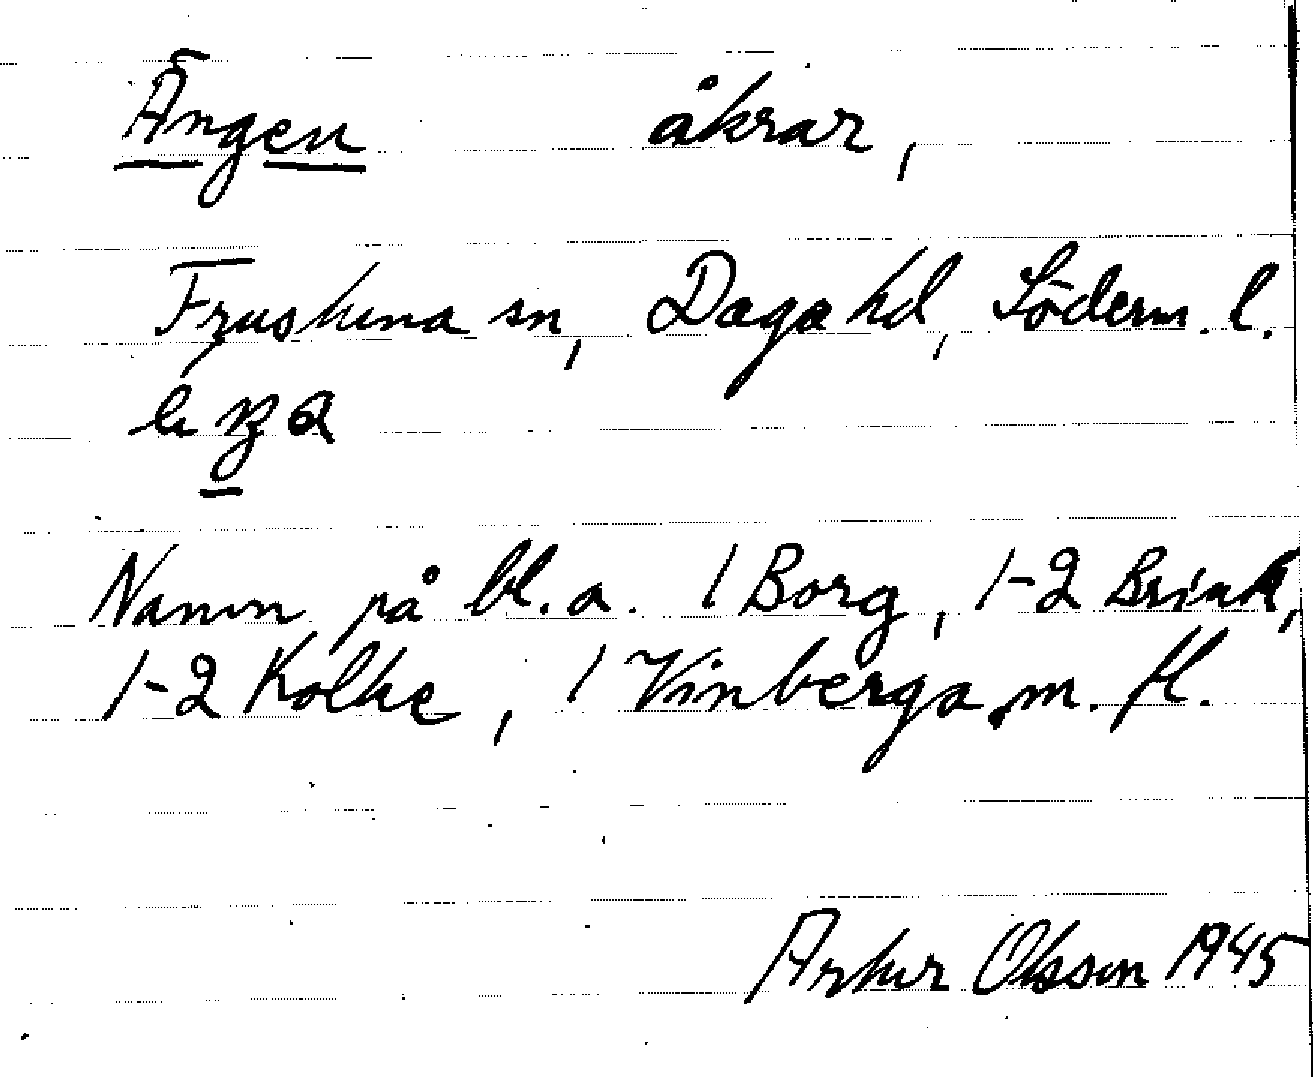 Ängen åkrar,
Frustuna sn, Daga hd, Söderm. l.
Namn på bl.a. 1 Borg, 1-2 Brink,
1-2 Kolke, 1 Vinberga, m. fl.
Artur Olsson 1945